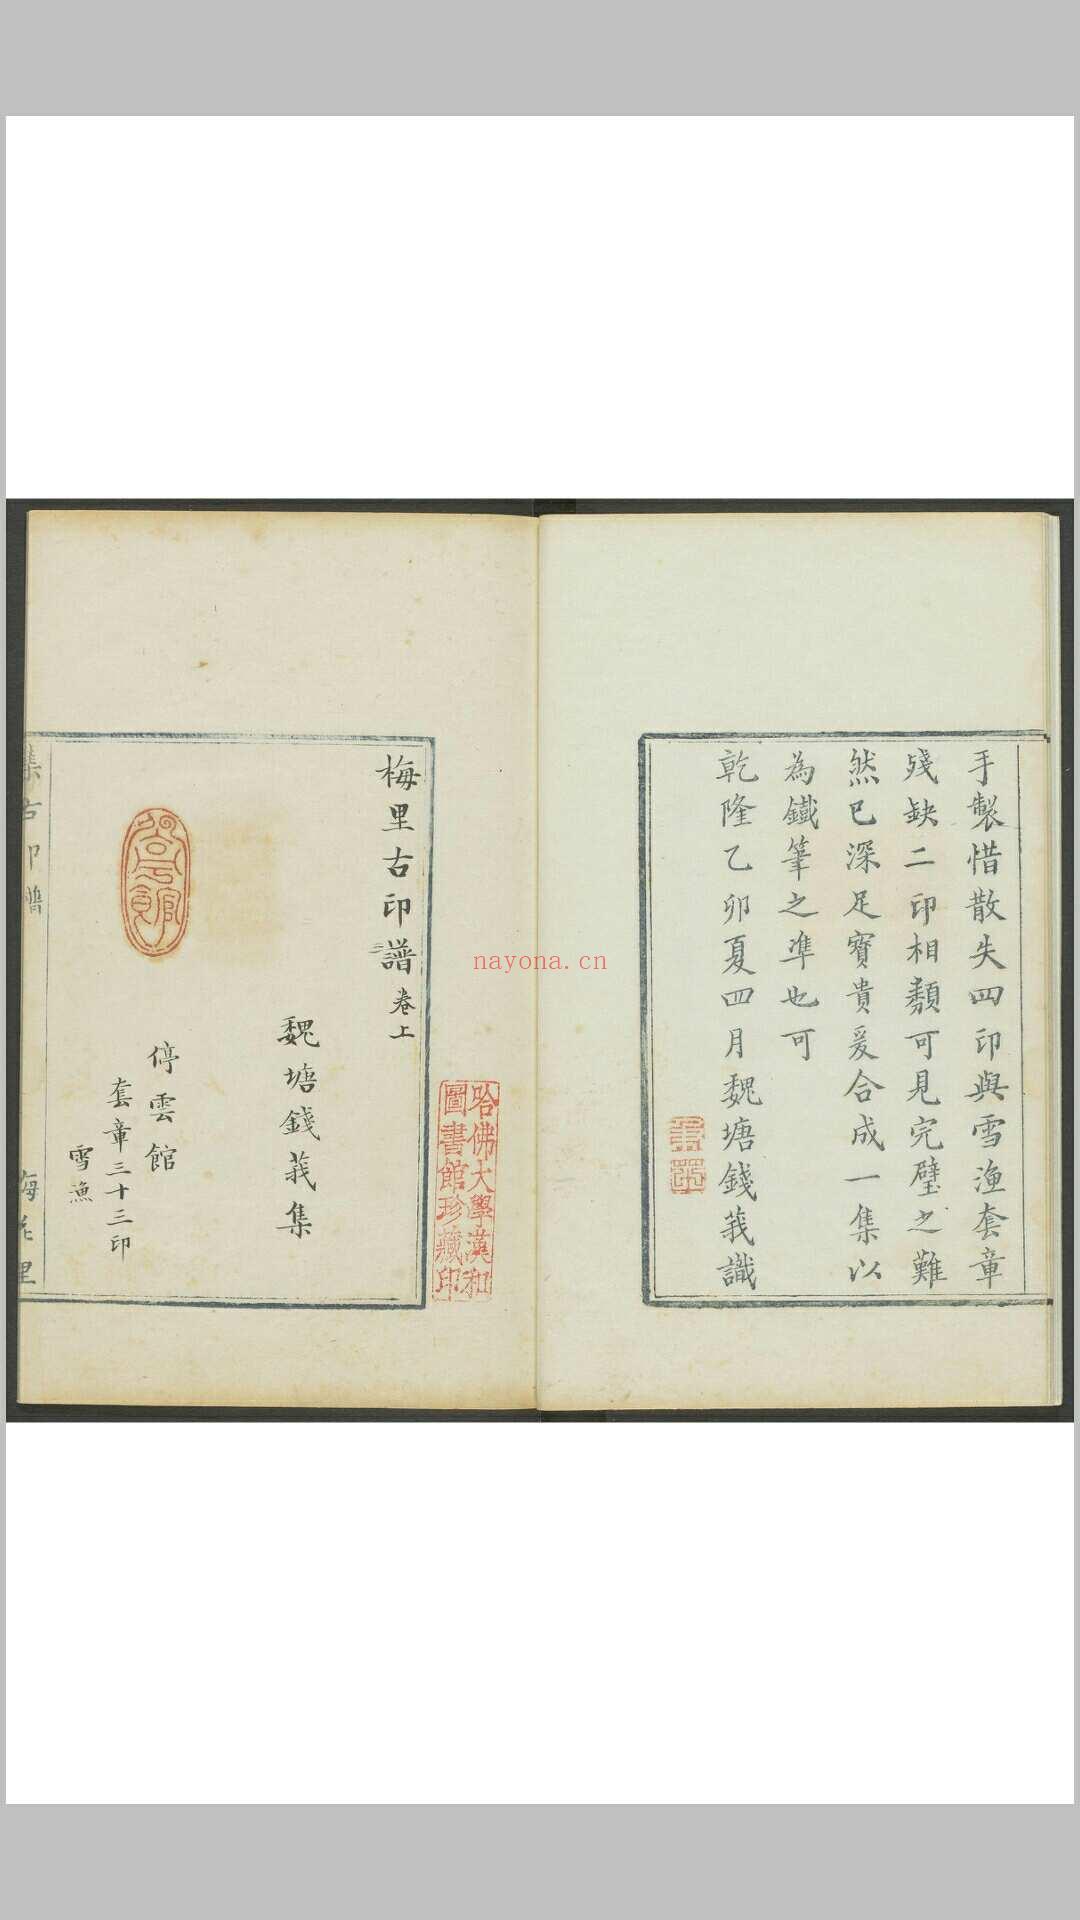 手製惜散失四印與雪漁套章
殘缺二印相類可見完璧之難
然已深足寶貴爰合成一集以
為鐵筆之準也可
乾隆乙卯夏四月魏塘錢莪識
梅里古印譜卷上
魏塘錢莪集
停雲館
套章三十三印
雪漁
停雲館
集古印譜
梅花里
哈佛大學漢和
圖書館珍藏印
nayona.cn